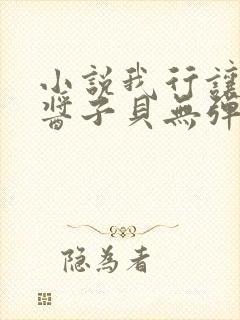 小説我行讓
醬子貝無彈
隐为者